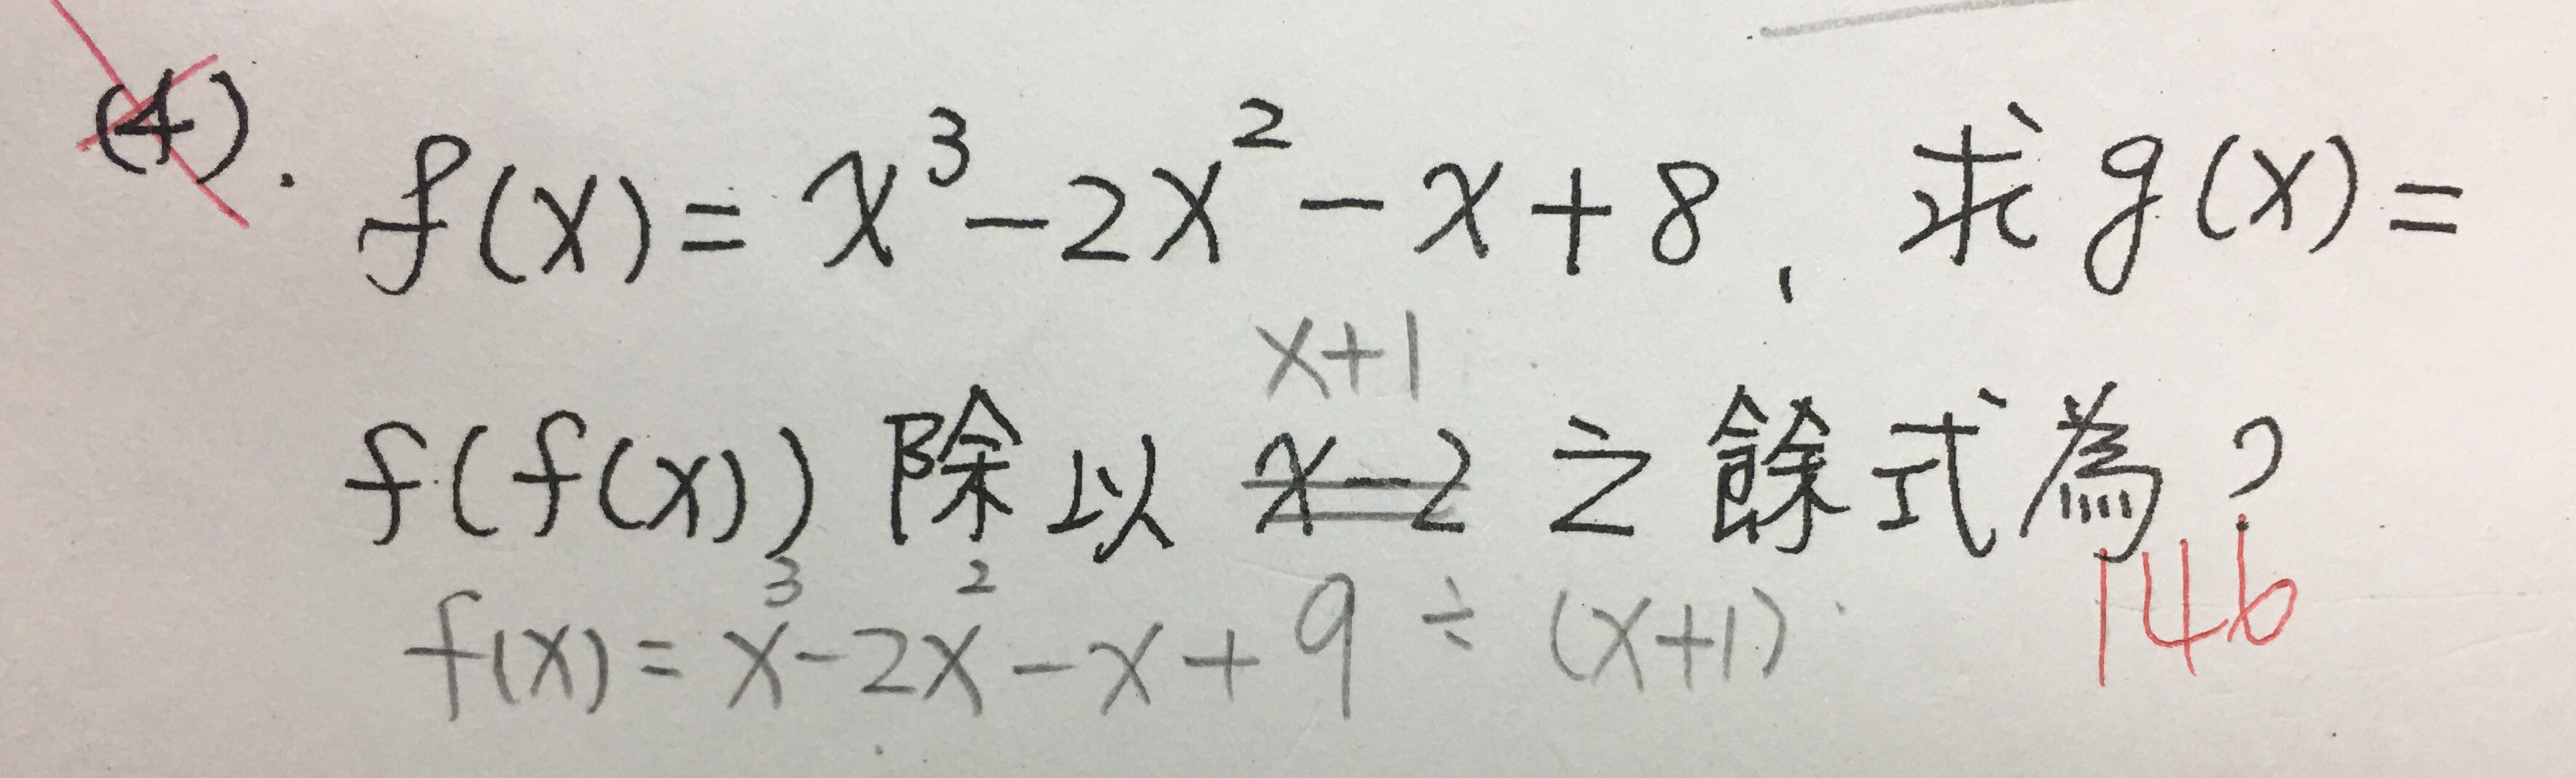 (4). f(x) = x³ - 2x² - x + 8 , 求 g(x) =
x+1
f(f(x)) 除以 x-2 之餘式為?
146
f(x) = x³ - 2x² - x + 9 ÷ (x+1)